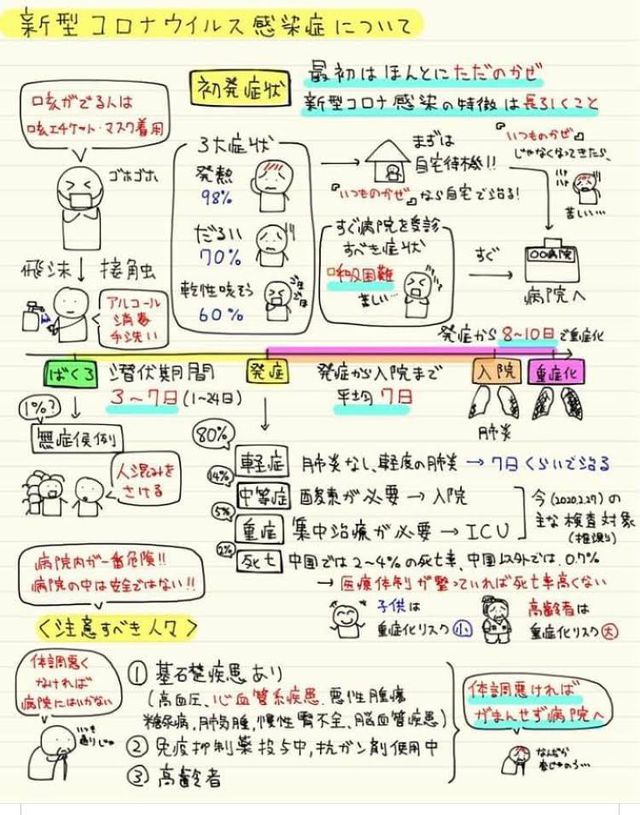 新型コロナウイルス感染症について
初発症状
最初はほんとにただのかぜ
新型コロナ感染の特徴は長引くこと
口咳がでる人は
咳エチケット・マスク着用
ゴホゴホ
3大症状
発熱
98%
だるい
70%
乾性咳そう
60%
まずは
自宅待機!!
『いつものかぜ』なら自宅で治る!
『いつものかぜ』
じゃなくなってきたら、
苦しい…
すぐ病院を受診
すべき症状
呼吸困難
苦しい…
すぐ
〇〇病院
病院へ
飛沫
接触
アルコール
消毒
手洗い
発症から8~10日で重症化
ばくろ
潜伏期間
3~7日(1~24日)
発症
発症から入院まで
平均7日
入院
重症化
肺炎
1%?
無症候例
人混みを
さける
80%
軽症
肺炎なし、軽度の肺炎→7日くらいで治る
14%
中等症
酸素が必要→入院
5%
重症
集中治療が必要→ICU
今(2020.2.27)の
主な検査対象
(推測)
2%
死亡
中国では2~4%の死亡率、中国以外では0.7%
→医療体制が整っていれば死亡率高くない
子供は
重症化リスク小
高齢者は
重症化リスク大
病院内が一番危険!!
病院の中は安全ではない!!
<注意すべき人々>
体調悪く
なければ
病院にはいかない
いつも
通りじゃ
①基礎疾患あり
(高血圧、心血管系疾患、悪性腫瘍
糖尿病、肺気腫、慢性腎不全、脳血管疾患)
②免疫抑制薬投与中、抗ガン剤使用中
③高齢者
体調悪ければ
がまんせず病院へ
なんだか